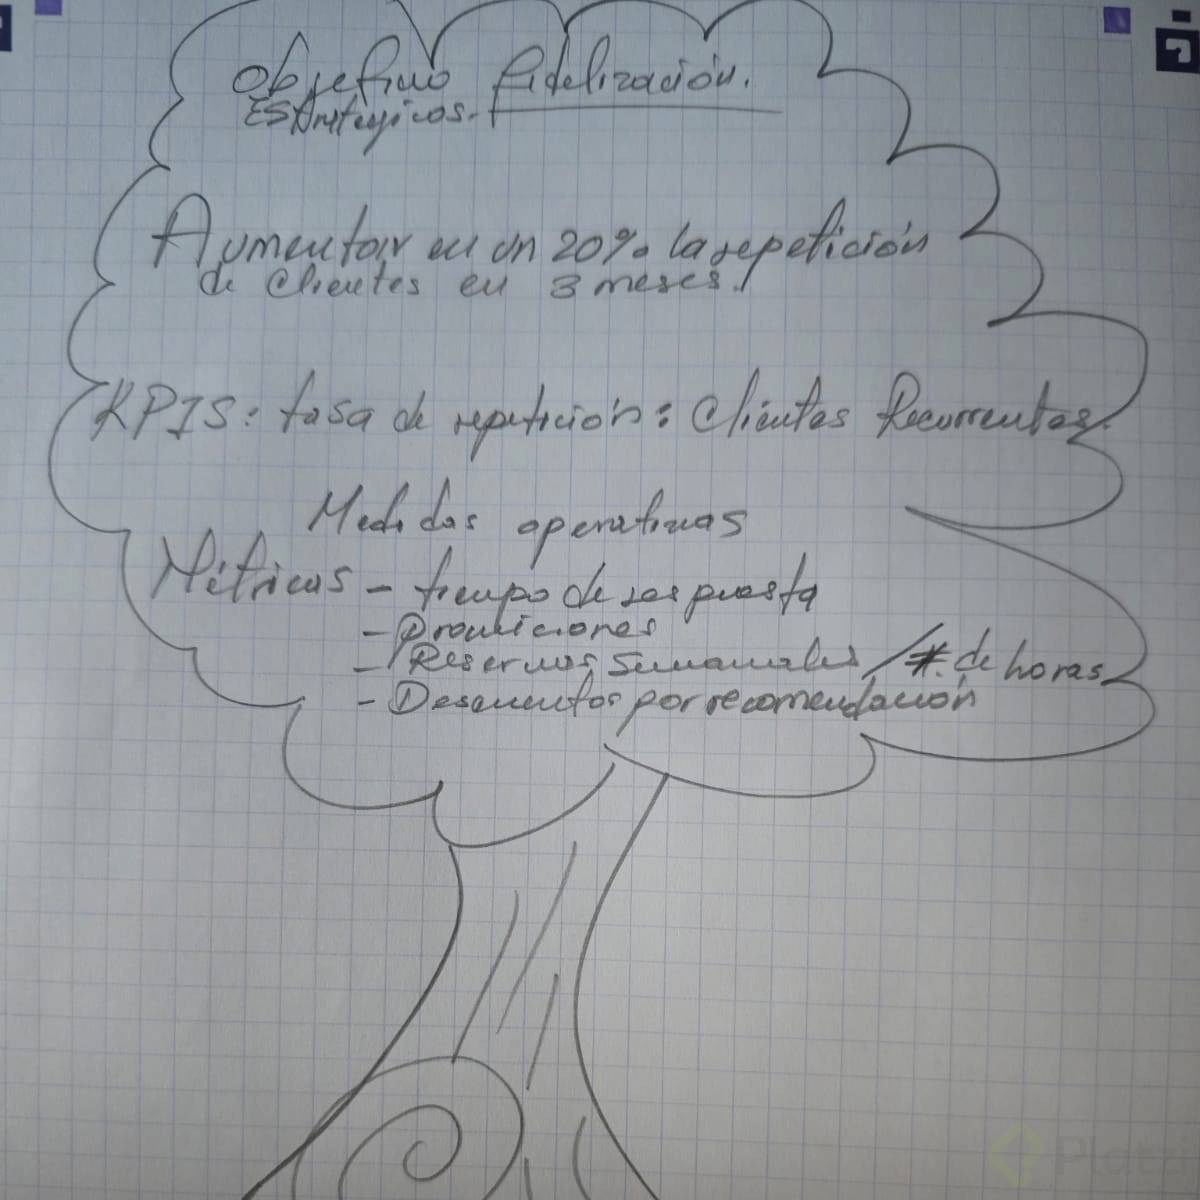 Objetivo fidelización.
Estrategicos.
Aumentar en un 20% la repetición
de clientes en 3 meses.
KPIS: tasa de repetición: Clientes Recurrentes
Medidas operativas
Métricas - tiempo de respuesta
- Promiciones
- Reservas Semanales / #. de horas
- Descuentos por recomendación